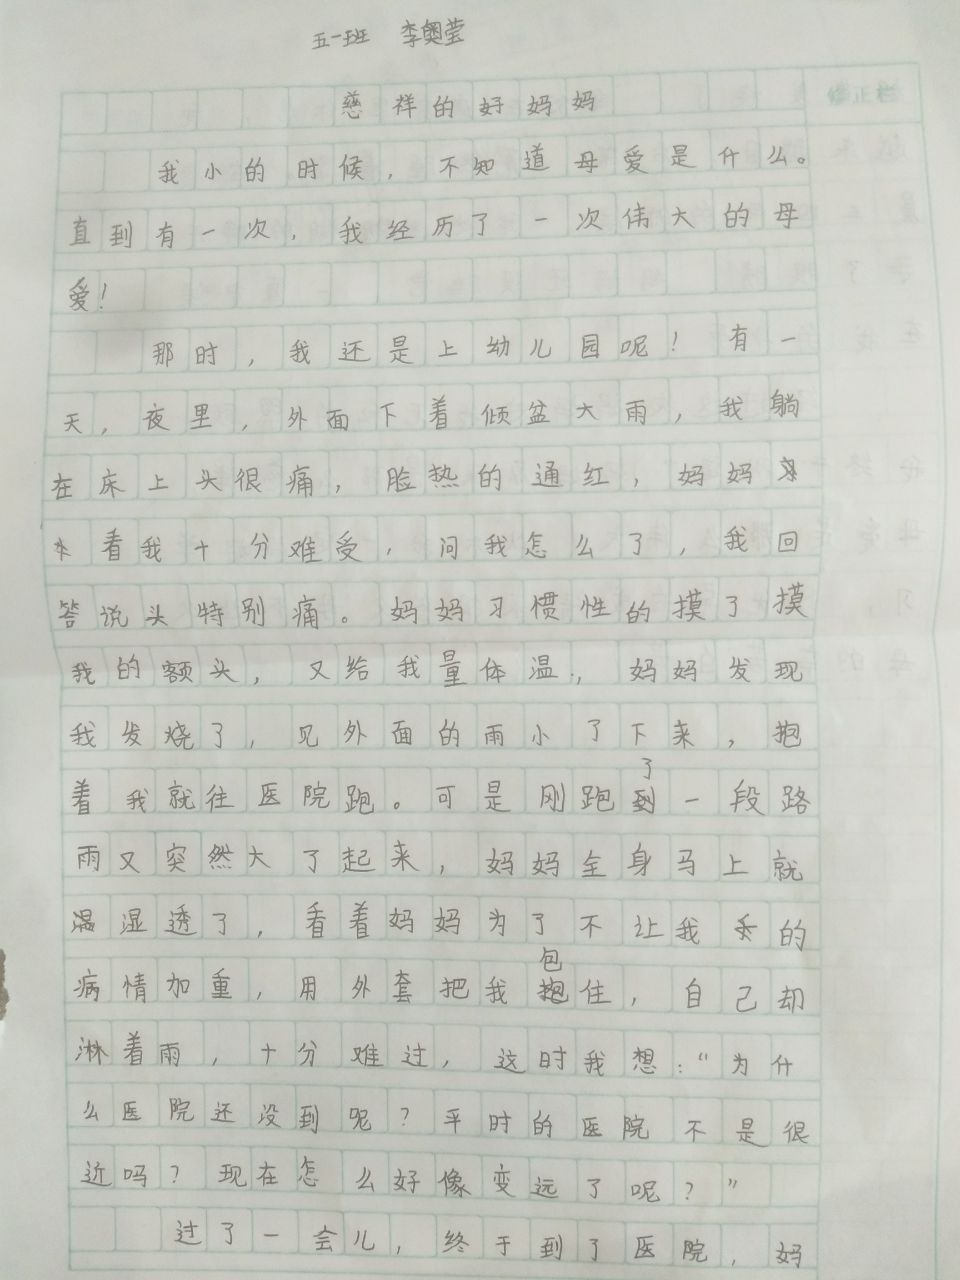 五一班 李奥莹
慈祥的好妈妈
修正栏
我小的时候,不知道母爱是什么。
直到有一次,我经历了一次伟大的母
爱!
那时,我还是上幼儿园呢!有一
天,夜里,外面下着倾盆大雨,我躺
在床上头很痛,脸热的通红,妈妈
看我十分难受,问我怎么了,我回
答说头特别痛。妈妈习惯性的摸了摸
我的额头,又给我量体温,妈妈发现
我发烧了,见外面的雨小了下来,抱
着我就往医院跑。可是刚跑了一段路
雨又突然大了起来,妈妈全身马上就
湿透了,看着妈妈为了不让我的
病情加重,用外套把我包住,自己却
淋着雨,十分难过,这时我想:“为什
么医院还没到呢?平时的医院不是很
近吗?现在怎么好像变远了呢?”
过了一会儿,终于到了医院,妈